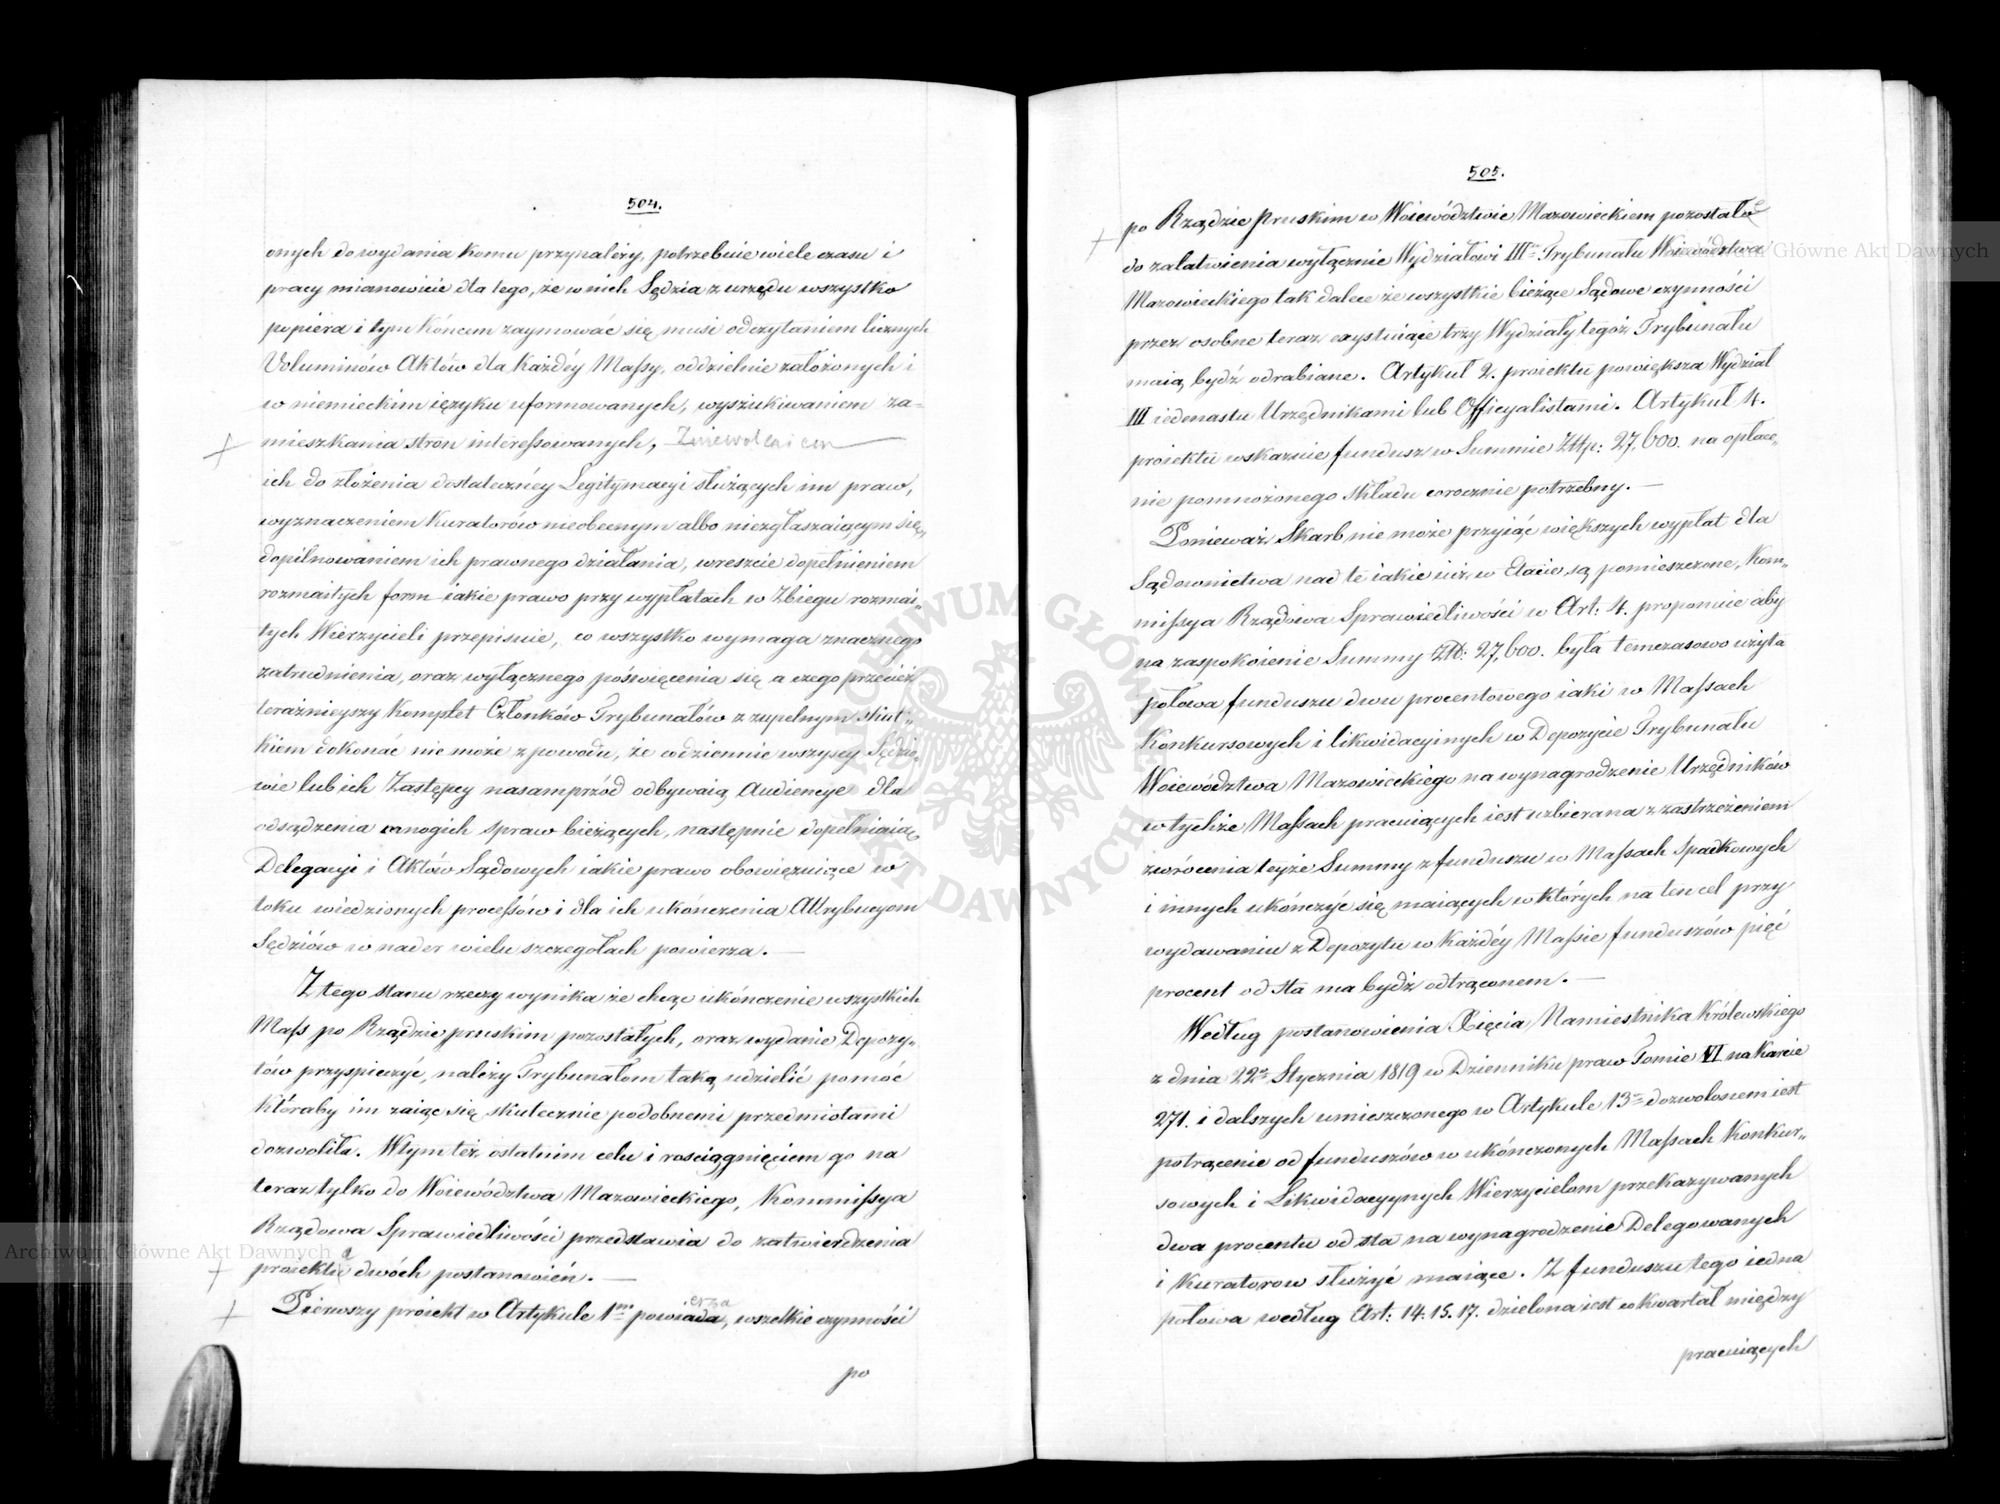 504.
onych do wydania komu przynależy, potrzebuie wiele czasu i
pracy mianowicie dla tego, że w nich Sędzia z urzędu wszystko
popiera i tym końcem zaymować się musi odczytaniem licznych
Voluminów Aktów dla każdéy Massy, oddzielnie założonych i
w niemieckim ięzyku uformowanych, wyszukiwaniem za=
mieszkania stron interessowanych, Zniewoleniem
ich do złożenia dostatecznéy Legitymacyi służących im praw,
wyznaczeniem Kuratorów nieobecnym albo niezgłaszaiącym się,
dopilnowaniem ich prawnego działania, wreszcie dopełnieniem
rozmaitych form iakie prawo przy wypłatach w Zbiegu rozmai„
tych Wierzycieli przepisuie, co wszystko wymaga znacznego
zatrudnienia, oraz wyłącznego poświęcenia się a czego przecież
teraźnieyszy Komplet Członków Trybunałów z zupełnym skut„
kiem dokonać nie może z powodu, że codziennie wszyscy Sędzio„
wie lub ich Zastępcy nasamprzód odbywaią Audiencye dla
odsądzenia mnogich spraw bieżących, następnie dopełniaią
Delegacyi i Aktów Sądowych iakie prawo obowięzuiące w
toku wiedzionych processów i dla ich ukończenia Attrybucyom
Sędziów w nader wielu szczegółach powierza. —
Z tego stanu rzeczy wynika że chcąc ukończenie wszystkich
Mass po Rządzie pruskim pozostałych, oraz wydanie Depozy„
tów przyspieszyć, należy Trybunałom taką udzielić pomoc
któraby im zaiąc się skutecznie podobnemi przedmiotami
dozwoliła. W tym też ostatnim celu i rosciągnięciem go na
teraz tylko do Woiewództwa Mazowieckiego, Kommissya
Rządowa Sprawiedliwości przedstawia do zatwierdzenia
proiektu a dwóch postanowień. —
Pierwszy proiekt w Artykule 1m powiada, erza wszelkie czynności
po
505.
po Rządzie Pruskim w Woiewództwie Mazowieckiem pozostałe
do załatwienia wyłącznie Wydziałowi III Trybunału Woiewództwa
Mazowieckiego tak dalece że wszystkie bieżące Sądowe czynności
przez osobne teraz exystuiące trzy Wydziały tegoż Trybunału
maią bydź odrabiane. Artykuł 2. proiektu powiększa Wydział
III iedenastu Urzędnikami lub Officyalistami. Artykuł 4.
proiektu wskazuie fundusz w Summie Złtp: 27,600. na opłace„
nie pomnożonego składu corocznie potrzebny. —
Ponieważ Skarb nie może przyiąć większych wypłat dla
Sądownictwa nad te iakie iuż w Etacie są pomieszczone, Kom„
missya Rządowa Sprawiedliwości w Art: 4. proponuie aby
na zaspokoienie Summy Złt: 27,600. była temczasowo użyta
połowa funduszu dwu procentowego iaki w Massach
Konkursowych i likwidacyinych w Depozycie Trybunału
Woiewództwa Mazowieckiego na wynagrodzenie Urzędników
w tychże Massach pracuiących iest uzbierana z zastrzeżeniem
zwrócenia teyże Summy z funduszu w Massach Spadkowych
i innych ukończyć się maiących w których na ten cel przy
wydawaniu z Depozytu w każdéy Massie funduszów pięć
procent od sta ma bydź odtrąconem. —
Według postanowienia Xięcia Namiestnika Królewskiego
z dnia 22o Stycznia 1819 w Dzienniku praw Tomie VI na Karcie
271. i dalszych umieszczonego w Artykule 13m dozwolonem iest
potrącenie od funduszów w ukończonych Massach Konkur„
sowych i Likwidacyynych Wierzycielom przekazywanych
dwa procentu od sta na wynagrodzenie Delegowanych
i Kuratorow służyć maiące. Z funduszu tego iedna
połowa według Art: 14. 15. 17. dzielona iest w kwartał między
pracuiących
ARCHIWUM GŁÓWNE AKT DAWNYCH
Archiwum Główne Akt Dawnych
Główne Akt Dawnych